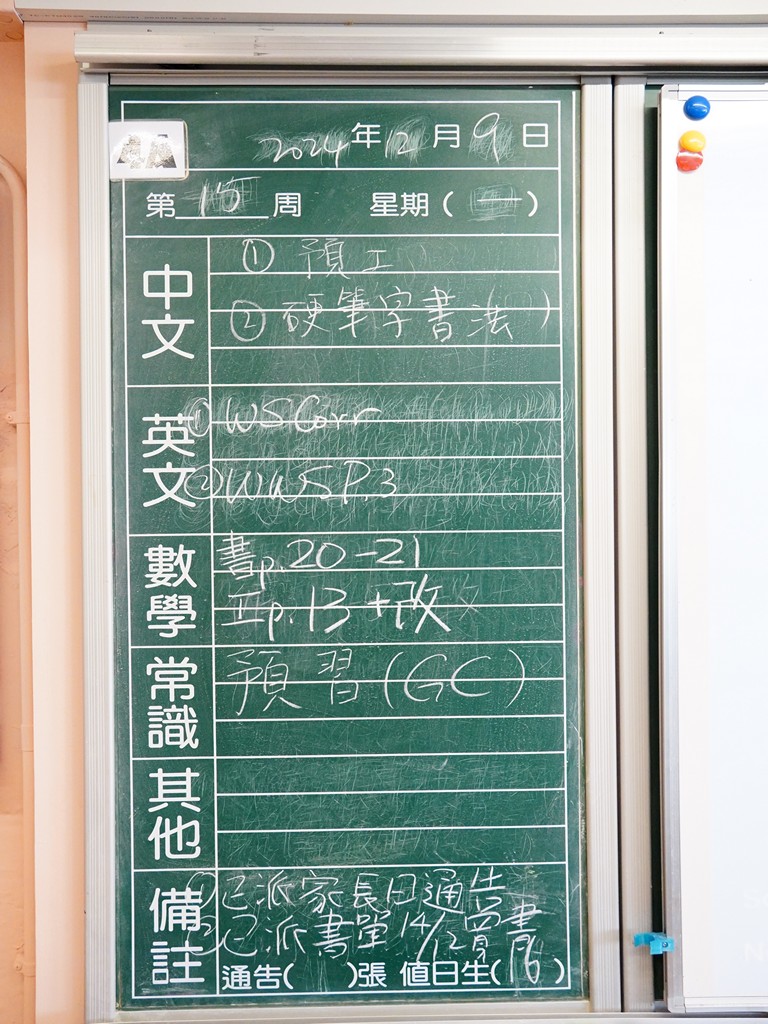 2024年12月9日
第15周 星期(一)
中文
① 預工
② 硬筆字書法)
英文
① WS Corr
② WWS P.3
數學
書p.20-21
p.13+改
常識
預習(GC)
其他
備註
①已派家長日通告
②已派書單14/12買書
通告( )張 值日生(16)